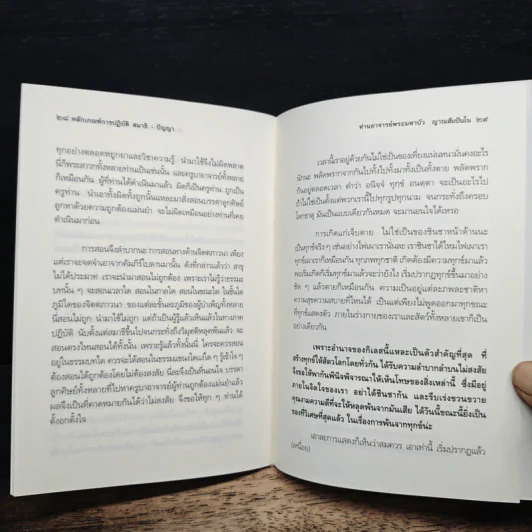 ๒๘ หลักเกณฑ์การปฏิบัติ สมาธิ - ปัญญา
ทุกอย่างตลอดหยูกยาและวิชาความรู้ นำมาใช้จึงไม่ผิดพลาด
นี่ก็พระสาวกทั้งหลายท่านเป็นเช่นนั้น และครูบาอาจารย์ทั้งหลาย
ก็เหมือนกัน ผู้ที่ท่านได้ดำเนินมาแล้ว ผิดก็เป็นครูท่าน ถูกเป็น
ครูท่าน นำเอาทั้งผิดทั้งถูกนั้นแหละมาสั่งสอนบรรดาลูกศิษย์
ลูกหาด้วยความถูกต้องแม่นยำ จะไม่ผิดเหมือนอย่างท่านที่เคย
ดำเนินมาก่อน
การสอนจึงลำบากนะ การสอนทางด้านจิตตภาวนา เพียง
แต่เราจะจดจำเอาจากคัมภีร์ใบลานมานั้น ดังที่กล่าวแล้วว่า สาธุ
ไม่ได้ประมาท เราจะนำมาสอนไม่ถูกต้อง เพราะเราไม่รู้ว่าธรรมะ
บทนั้น ๆ จะสอนเวลาใด สอนในกาลใด สอนในขณะใด ในขั้นใด
ภูมิใดของจิตตภาวนา ของแต่ละขั้นละภูมิของผู้บำเพ็ญทั้งหลาย
นี่สอนไม่ถูก นำมาใช้ไม่ถูก แต่ถ้าเป็นผู้รู้แล้วเห็นแล้วในทางภาค
ปฏิบัติ นับตั้งแต่สมาธิขึ้นไปจนกระทั่งถึงมุตติหลุดพ้นแล้ว จะ
สอนตรงไหนสอนได้ทั้งนั้น เพราะรู้แล้วทั้งนั้นนี่ ใครควรจะสอน
อยู่ในธรรมบทใด ควรจะได้สอนในธรรมแขนงใดแง่ใด ๆ รู้เข้าใจ ๆ
ต้องสอนได้ถูกต้องโดยไม่ต้องสงสัย นี่ละจึงเป็นที่แน่นอนใจ บรรดา
ลูกศิษย์ทั้งหลายที่ไปหาครูบาอาจารย์ผู้ท่านถูกต้องแม่นยำแล้ว
ผลจึงเป็นที่คาดหมายกันได้ว่าไม่สงสัย จึงขอให้ทุก ๆ ท่านได้
ตั้งอกตั้งใจ
ท่านอาจารย์พระมหาบัว ญาณสัมปันโน ๒๙
เวลานี้เราอยู่ด้วยกันไม่ใช่เป็นของเที่ยงแน่นหนามั่นคงอะไร
นักนะ พลัดพรากจากกันไปทั้งไปทั้งมาทั้งเป็นทั้งตาย พลัดพราก
กันอยู่ตลอดเวลา คำว่า อนิจจํ ทุกขํ อนตฺตา จะเป็นอะไรไป
ถ้าไม่ใช่เป็นตั้งแต่พวกเรานี้ไปทุกรูปทุกนาม จนกระทั่งถึงครอบ
โลกธาตุ มันเป็นแบบเดียวกันหมด จะมานอนใจได้เหรอ
การเกิดแก่เจ็บตาย ไม่ใช่เป็นของชินชาหน้าด้านนะ
เป็นทุกข์จริง ๆ เช่นอย่างไฟเผาเรานั่นละ เราชินชาได้ไหมไฟเผาเรา
ทุกข์เผาเราก็เหมือนกัน ทุกภพทุกชาติ เกิดต้องมีความทุกข์มาแล้ว
พอเริ่มเกิดก็เริ่มทุกข์เผาแล้วจะว่ายังไง เริ่มปรากฏทุกข์ขึ้นมาอย่าง
ชัด ๆ แล้วตายก็เหมือนกัน ความเป็นอยู่แต่ละภพละชาติหา
ความสุขความสบายที่ไหนได้ เป็นแต่เพียงไม่พูดออกมาจากทุกขณะ
ที่ทุกข์แสดงตัว ภายในร่างกายของเราและสัตว์ทั้งหลายเขาก็เป็น
อย่างเดียวกัน
เพราะอำนาจของกิเลสนี้แหละเป็นตัวสำคัญที่สุด ที่
สร้างทุกข์ให้สัตว์โลกโดยทั่วกัน ได้รับความลำบากลำบนไม่สงสัย
จึงขอให้พากันพินิจพิจารณาให้เห็นโทษของสิ่งเหล่านี้ ซึ่งมีอยู่
ภายในจิตใจของเรา อย่าได้ชินชากัน และรีบเร่งขวนขวาย
คุณงามความดีที่จะให้หลุดพ้นจากมันเสีย ได้วันนี้ขณะนี้ยิ่งเป็น
ของที่วิเศษที่สุดแล้ว ในเรื่องการพ้นจากทุกข์น่ะ
เอาละการแสดงก็เห็นว่าสมควร เอาเท่านี้ เริ่มปรากฏแล้ว
(เหนื่อย)